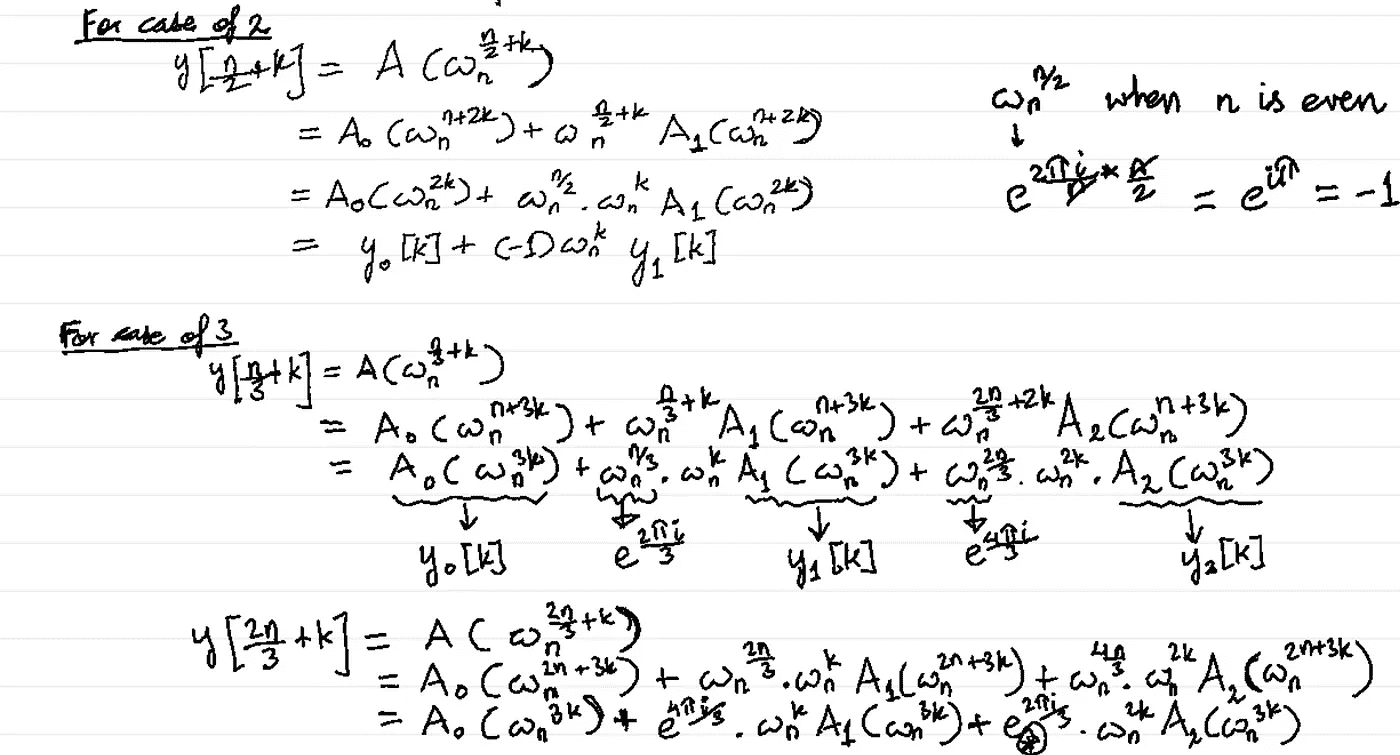 For case of 2
y[n/2+k] = A(ω_n^{n/2+k})
= A₀(ω_n^{n+2k}) + ω_n^{n/2+k} A₁(ω_n^{n+2k})
= A₀(ω_n^{2k}) + ω_n^{n/2}.ω_n^k A₁(ω_n^{2k})
= y₀[k] + (-1)ω_n^k y₁[k]
ω_n^{n/2} when n is even
↓
e^{2πi/n * n/2} = e^{iπ} = -1
For case of 3
y[n/3+k] = A(ω_n^{n/3+k})
= A₀(ω_n^{n+3k}) + ω_n^{n/3+k} A₁(ω_n^{n+3k}) + ω_n^{2n/3+2k} A₂(ω_n^{n+3k})
= A₀(ω_n^{3k}) + ω_n^{n/3}.ω_n^k A₁(ω_n^{3k}) + ω_n^{2n/3}.ω_n^{2k}.A₂(ω_n^{3k})
↓ ↓ ↓ ↓ ↓
y₀[k] e^{2πi/3} y₁[k] e^{4πi/3} y₂[k]
y[2n/3+k] = A(ω_n^{2n/3+k})
= A₀(ω_n^{2n+3k}) + ω_n^{2n/3}.ω_n^k A₁(ω_n^{2n+3k}) + ω_n^{4n/3}.ω_n^{2k} A₂(ω_n^{2n+3k})
= A₀(ω_n^{3k}) + e^{4πi/3}.ω_n^k A₁(ω_n^{3k}) + e^{2πi/3}.ω_n^{2k} A₂(ω_n^{3k})